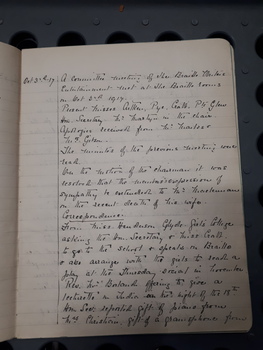 Oct 3rd 17. A committee meeting of the Braille
Entertainment met at the Braille rooms
on Oct 3rd 1917.
Present Misses Aitken, Pye,
Hon. Secretary Mr in the chair
Apologies received from
The minutes of the previous meeting were
read.
On the motion of the chairman it was
resolved that the expression of
sympathy be extended to
on the recent death of his wife.
Correspondence.
From Miss Henderson Clyde Girls College
asking the Hon. Secretary &
to go to the school & speak on Braille
& also arrange with the girls to read a
play at the Thursday social in November
Rev. Mr offering to give a
lecturette on India on the night of the 18th
Hon. Sec. reported gift of piano from
gift of a gramophone from